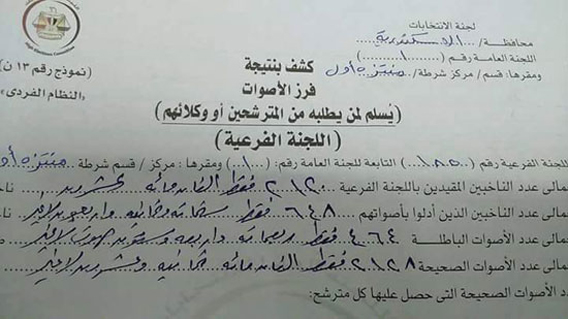 لجنة الانتخابات
محافظة/ الاسكندرية
اللجنة العامة رقم (١)
ومقرها: قسم / مركز شرطة/ منتزه أول
(نموذج رقم ١٣ ن)
«النظام الفردى»
كشف بنتيجة
فرز الأصوات
(يُسلم لمن يطلبه من المترشحين أو وكلائهم)
(اللجنة الفرعية)
للجنة الفرعية رقم (١٨٥) التابعة للجنة العامة رقم: (١) ومقرها: مركز / قسم شرطة منتزه أول
مالى عدد الناخبين المقيدين باللجنة الفرعية ٢١٢٠ فقط الفان ومائه وعشرون
مالى عدد الناخبين الذين أدلوا بأصواتهم ٦٤٨ فقط ستمائه وثمانيه واربعون لاغير
مالى عدد الأصوات الباطلة ٤٦٤ فقط اربعمائه واربعه وستون صوت لاغير
مالى عدد الأصوات الصحيحة ٢١٢٨ فقط الفان ومائه ثمانيه وعشرون لاغير
د الأصوات الصحيحة التى حصل عليها كل مترشح: